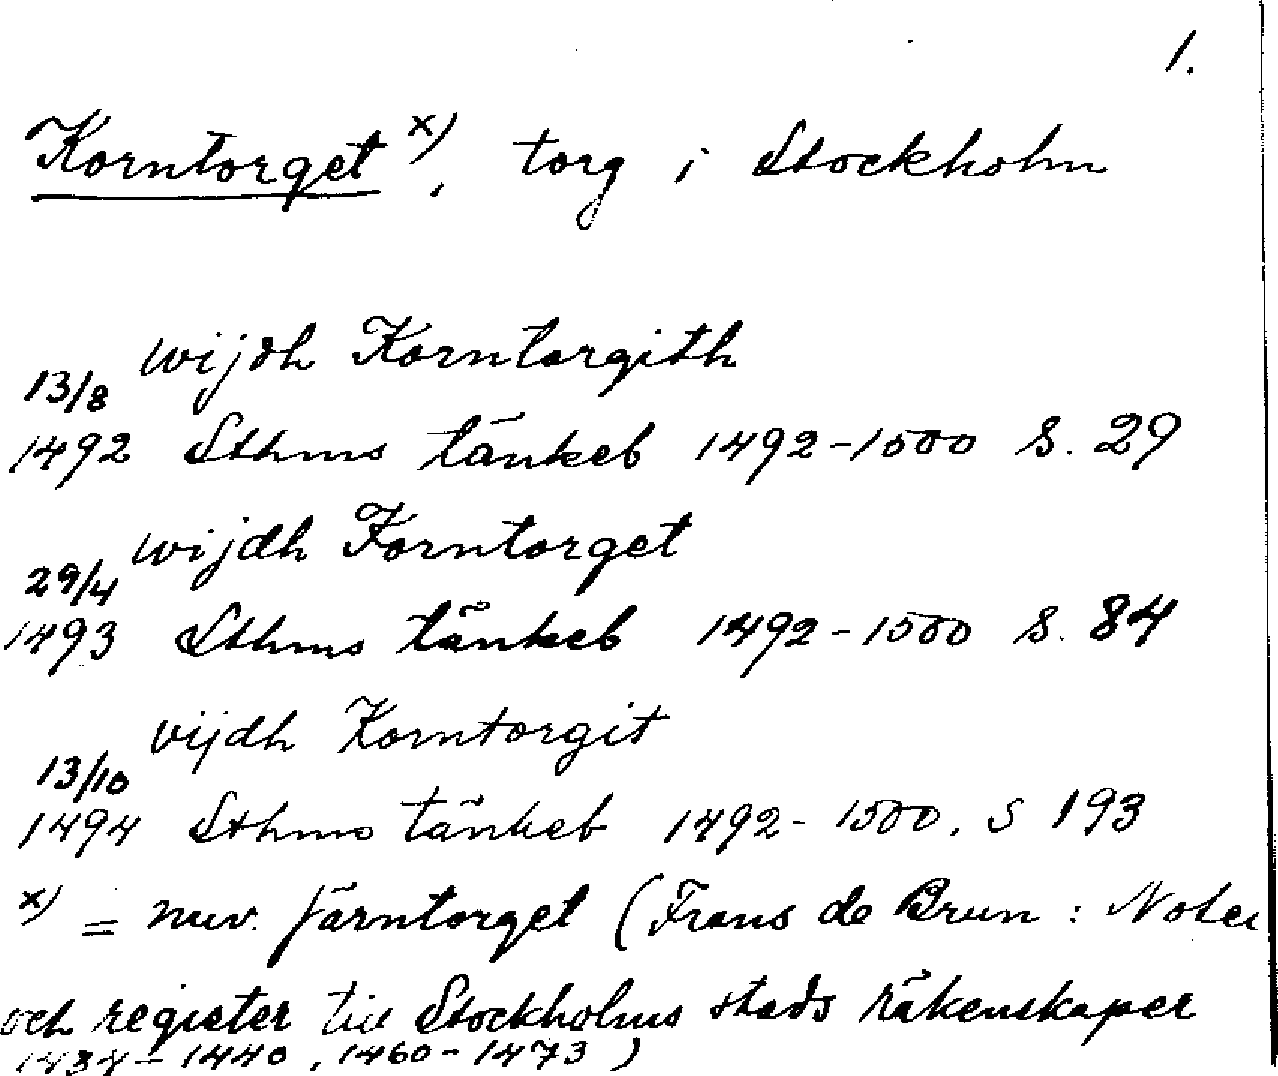 1.
Korntorget x), torg i Stockholm
wijdh Korntorgith
13/8
1492 Sthms tänkeb 1492-1500 S. 29
wijdh Korntorget
29/4
1493 Sthms tänkeb 1492-1500 S. 84
vijdh Korntorgit
13/10
1494 Sthms tänkeb 1492-1500, S 193
x) = nuv. Järntorget (Frans de Brun: Noter
och register till Stockholms stads räkenskaper
1434-1440, 1460-1473)